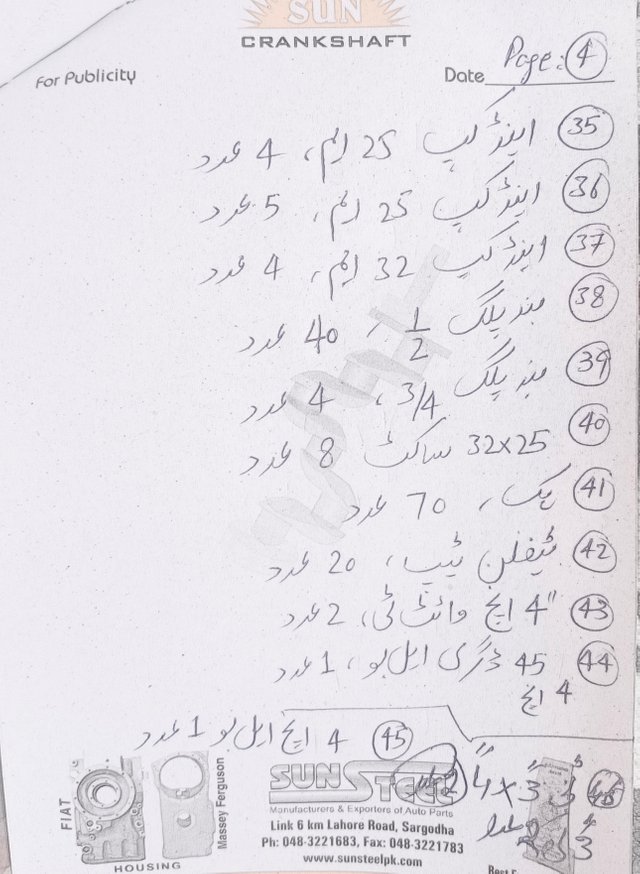 SUN
CRANKSHAFT
For Publicity
Date Page: 4
35 اینڈ کیپ 25 ایم، 4 عدد
36 اینڈ کیپ 25 ایم، 5 عدد
37 اینڈ کیپ 32 ایم، 4 عدد
38 بند پلگ 1/2، 40 عدد
39 بند پلگ 3/4، 4 عدد
40 32x25 ساکٹ 8 عدد
41 ہک، 70 عدد
42 ٹیفلن ٹیپ، 20 عدد
43 4" انچ وائٹ ٹی، 2 عدد
44 45 ڈگری ایل بو، 1 عدد
4 انچ
45 4 انچ ایل بو 1 عدد
4" x 3"
FIAT
Massey Ferguson
HOUSING
SUN STEEL
Manufacturers & Exporters of Auto Parts
Link 6 km Lahore Road, Sargodha
Ph: 048-3221683, Fax: 048-3221783
www.sunsteelpk.com